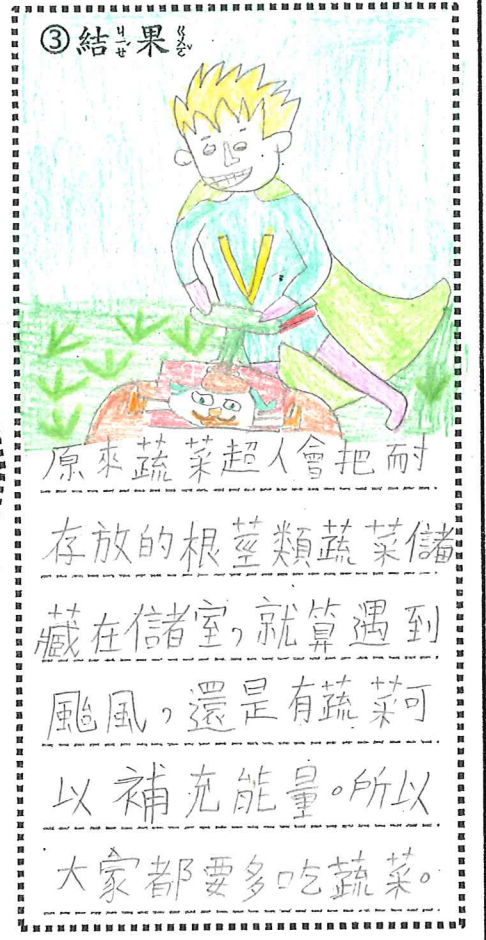 ③結ㄐㄧㄝˊ果ㄍㄨㄛˇ
V
原來蔬菜超人會把耐
存放的根莖類蔬菜儲
藏在儲室，就算遇到
颱風，還是有蔬菜可
以補充能量。所以
大家都要多吃蔬菜。